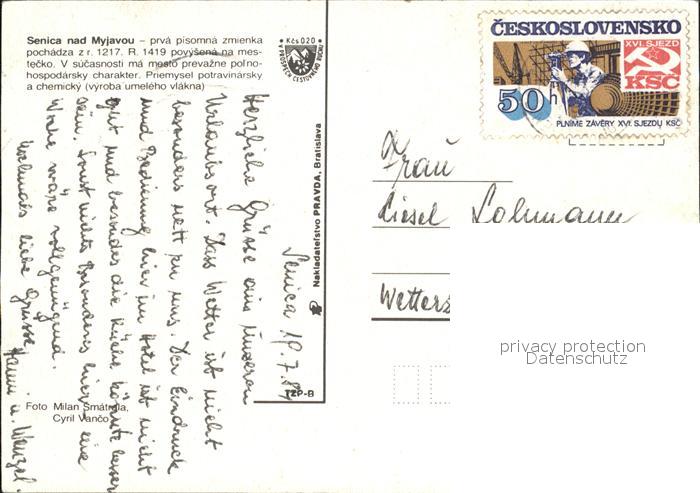 Senica nad Myjavou – prvá písomná zmienka
pochádza z r. 1217. R. 1419 povýšená na mes-
tečko. V súčasnosti má mesto prevažne poľno-
hospodársky charakter. Priemysel potravinársky
a chemický (výroba umelého vlákna)
Kčs 0,20
ČESKOSLOVENSKO
XVI. SJEZD
KSČ
50 h
PLNÍME ZÁVĚRY XVI. SJEZDU KSČ
Senica 19.7.
Herzliche Grüsse aus unserem
Urlaubsort. Das Wetter ist nicht
besonders nett zu uns. Der Eindruck
und Bedienung hier im Hotel ist nicht
gut und besonders die Küche könnte besser
sein. Sonst nichts Besonderes hier – eine
Woche wäre vollgenügend.
Nochmals liebe Grüsse
Hanni u. Wenzel.
Foto Milan Smatrala,
Cyril Vančo
Nakladateľstvo PRAVDA, Bratislava
TZP-B
Frau
Liesel Lohmann
Wetters
privacy protection
Datenschutz